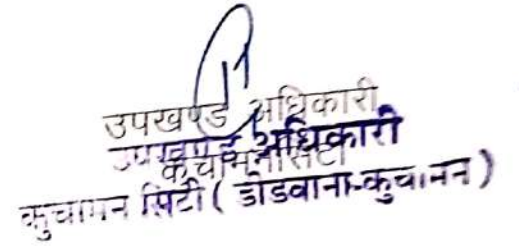 उपखण्ड अधिकारी
उपखण्ड अधिकारी
कुचामनसिटी
कुचामन सिटी ( डीडवाना-कुचामन )